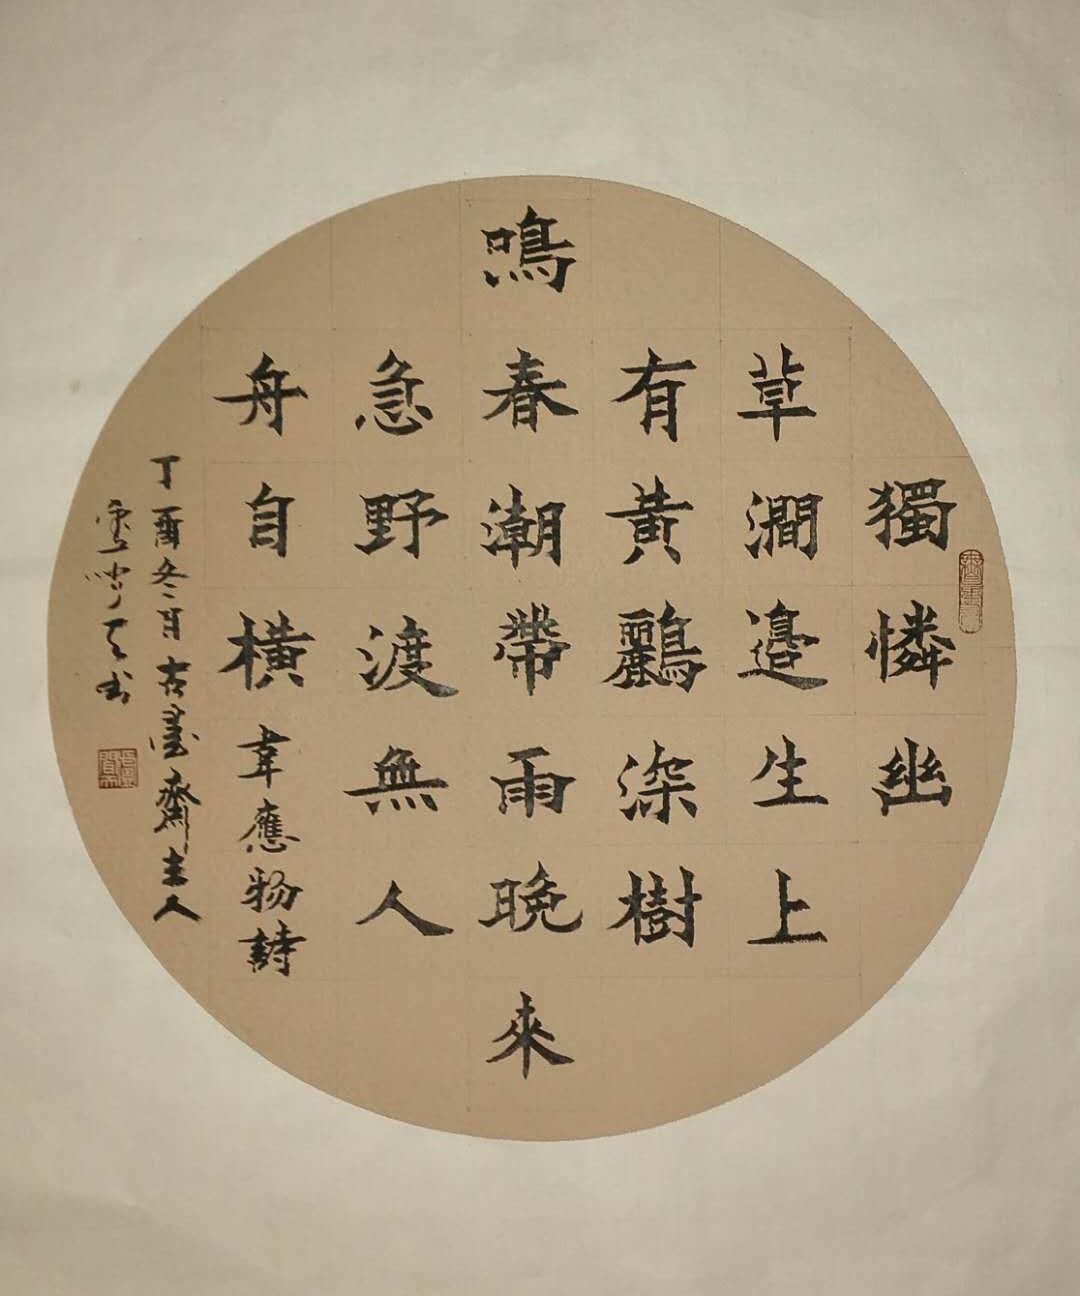 獨憐幽
草澗邊生上
有黃鸝深樹
鳴春潮帶雨晚來
急野渡無人
舟自橫 韋應物詩
丁酉冬月古臺齋主人